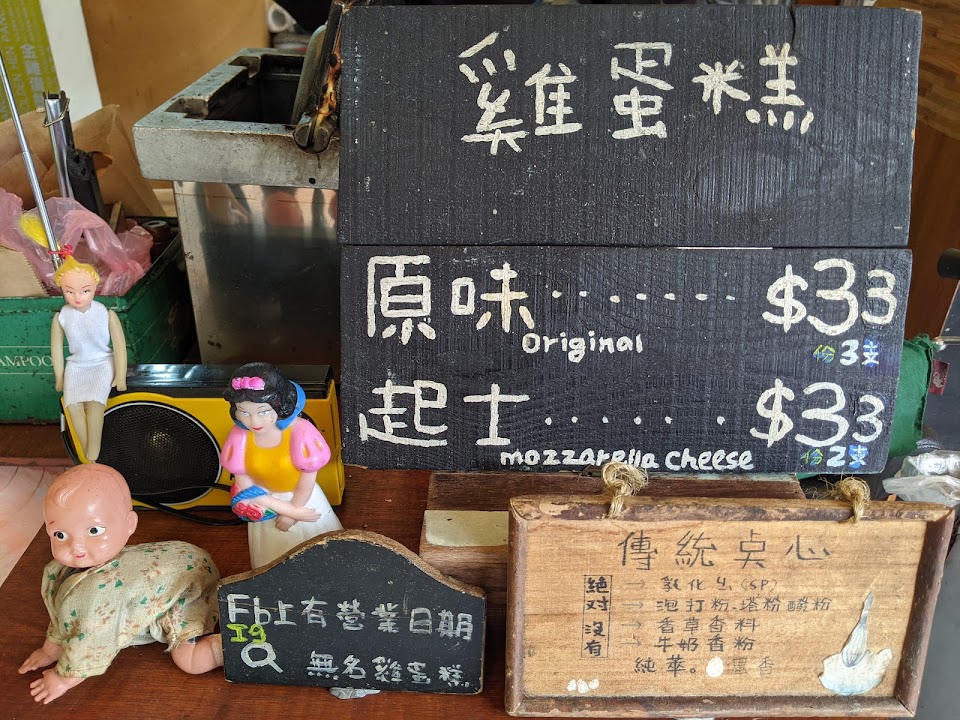 雞蛋糕
原味......$33
Original
份3支
起士......$33
mozzarella cheese
份2支
AMPOO
Fb上有營業日期
Ig
無名雞蛋糕
傳統点心
絶对沒有
→ 乳化劑(SP)
→ 泡打粉.塔粉酸粉
→ 香草香料
→ 牛奶香粉
純萃。蛋香